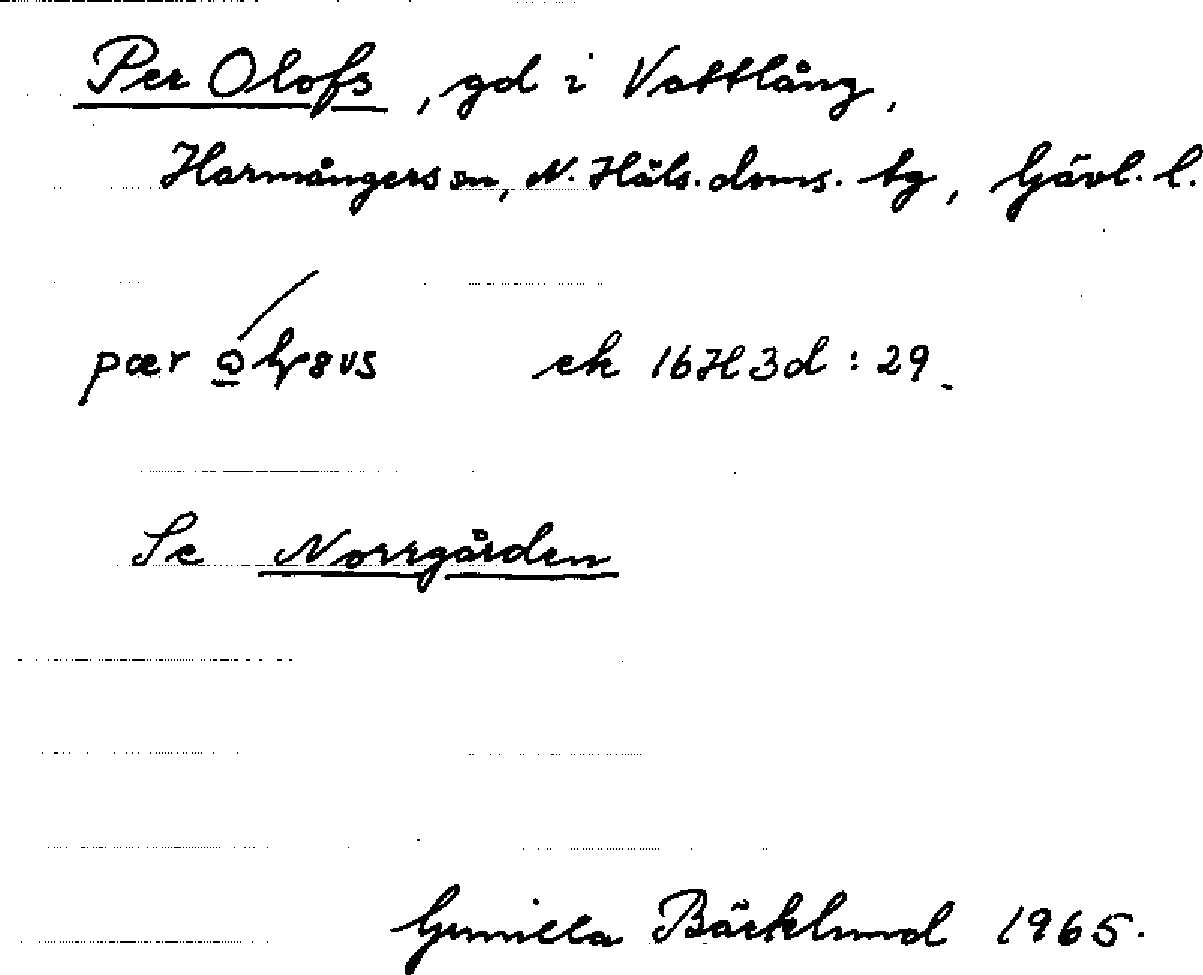 Per Olofs, gd i Vattlång,
Harmångers sn, N. Häls. doms. tg, Gävl. l.
pær ek 16H3d:29
Se Norrgården
Gunilla Bäcklund 1965.